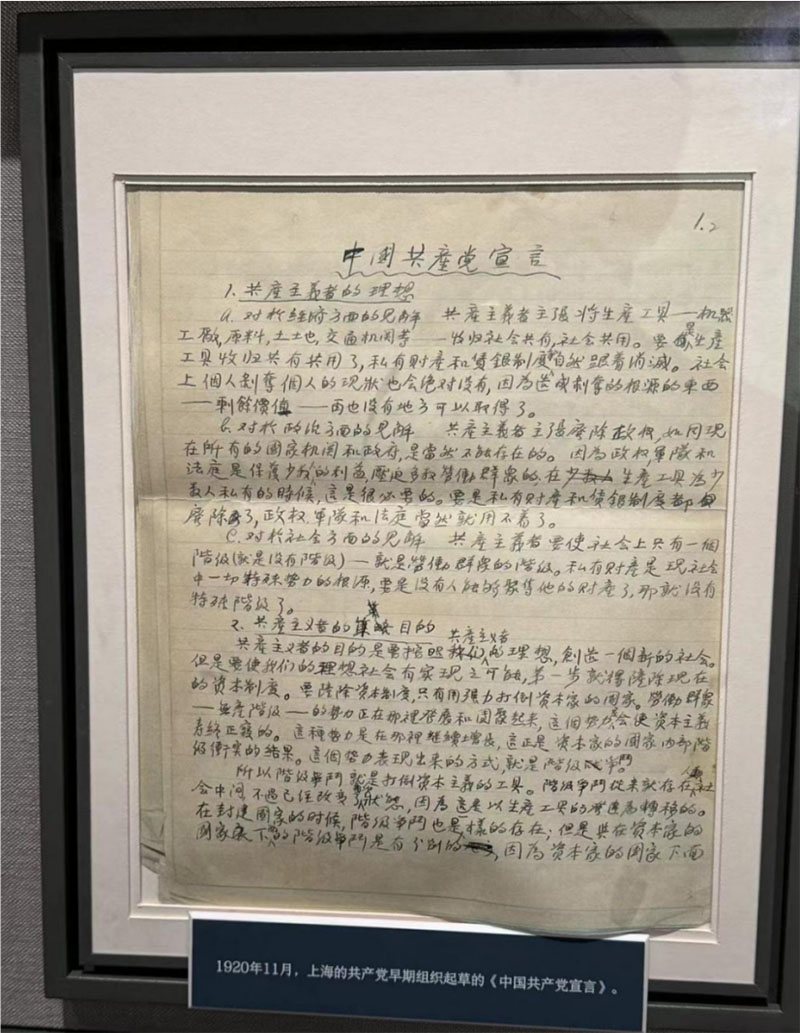 1.2
中国共產党宣言
1. 共產主義者的理想
a. 对於经济方面的见解 共產主義者主張将生産工具——机器
工廠，原料，土地，交通机関等——收归社会共有，社会共用。要是生産
工具收归共有共用了，私有财産和賃銀制度自然跟着消滅。社会
上個人剝奪個人的现狀也会绝对没有，因為造成剝奪的根源的東西
——剩餘價值——再也没有地方可以取得了。
b. 对於政治方面的见解 共產主義者主張廢除政权，如同现
在所有的國家机関和政府，是當然不能存在的。因為政权，軍隊和
法庭是保護少数的利益，壓迫多数勞働群眾的，在生産工具為少
数人私有的時候，這是很必要的。要是私有财産和賃銀制度都
廢除了，政权，軍隊和法庭當然就用不着了。
C. 对於社会方面的见解 共產主義者要使社会上只有一個
階级(就是没有階级)——就是勞働群眾的階级。私有财産是现社会
中一切特殊势力的根源，要是没有人能夠聚集他的财產了，那就没有
特殊階级了。
2. 共産主义者的目的
共產主義者的目的是要按照共產主义者的理想，創造一個新的社会。
但是要使我们的理想社会有实现之可能，第一步就得鏟除现在
的资本制度。要鏟除资本制度，只有用强力打倒资本家的國家。勞働群眾
——無産階级——的势力正在那裡發展和團聚起來，這個势力会使资本主義
寿終正寢的。這種势力是在那裡継續增長，這正是资本家的國家内部階
级衝突的结果。這個势力表现出来的方式，就是階级争鬥。
所以階级争鬥就是打倒资本主義的工具。階级争鬥從来就存在人類社
会中间，不過已经改变狀態，因為這是以生産工具的發達為轉移的。
在封建國家的时候，階级争鬥也是一樣的存在；但是與在资本家的
國家底下的階级争鬥是有分别的，因為资本家的國家下面
1920年11月，上海的共产党早期组织起草的《中国共产党宣言》。